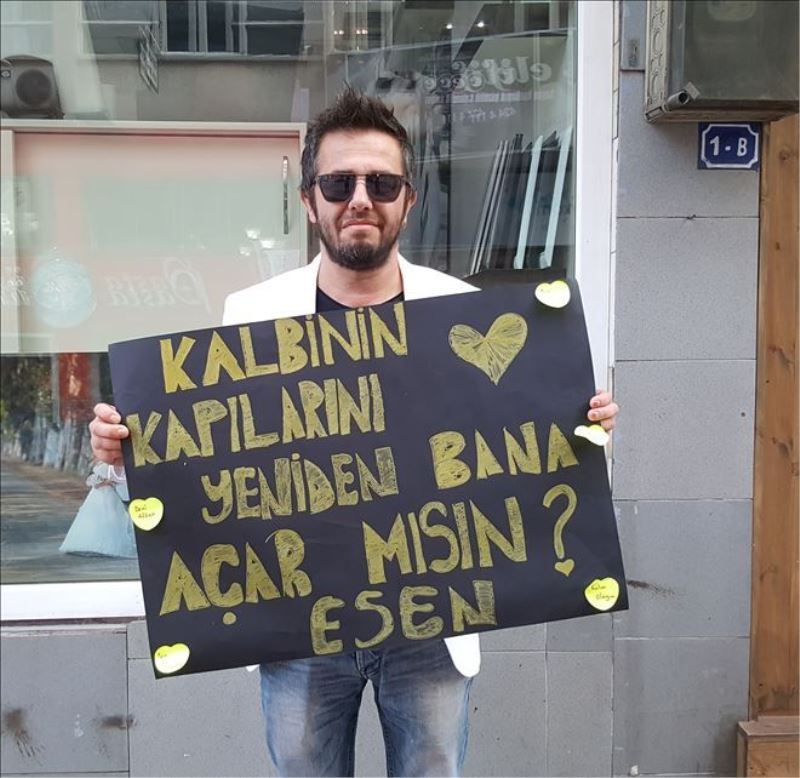 elifçe
1-B
Pasta
KALBİNİN
KAPILARINI
YENİDEN BANA
AÇAR MISIN?
ESEN